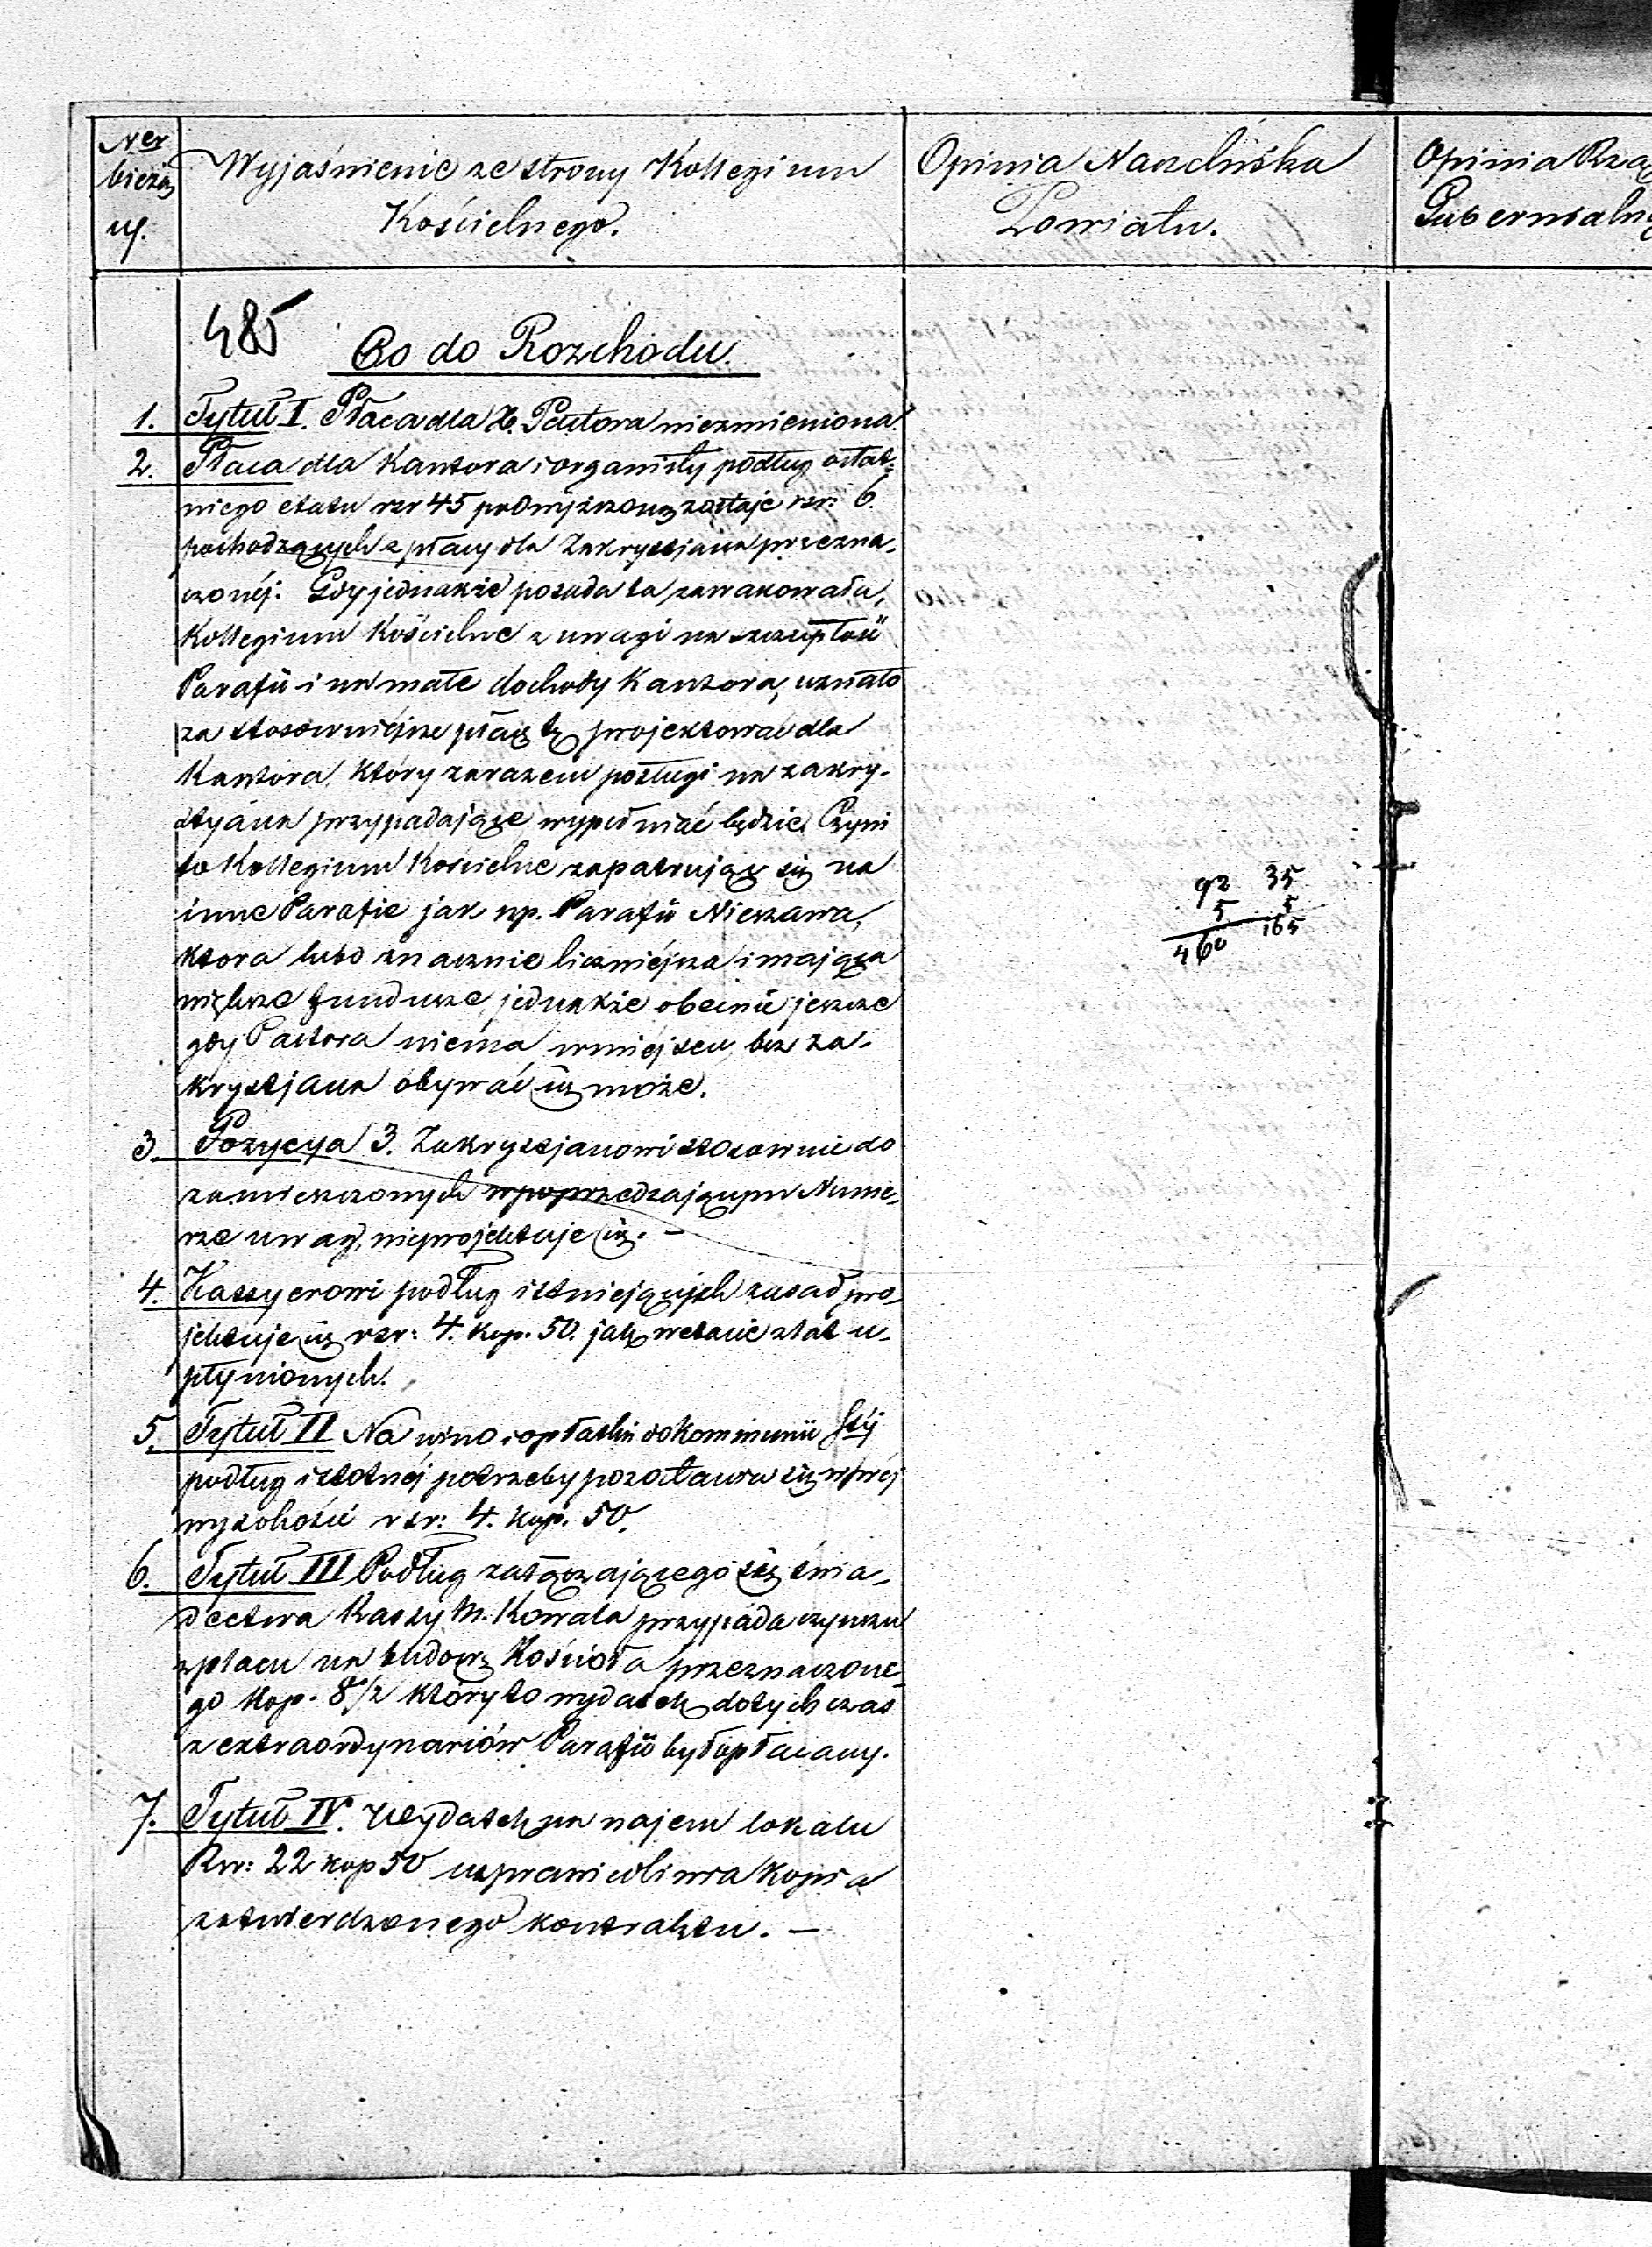 Ner bieżą cy.
Wyjaśnienie ze strony Kollegium
Kościelnego.
Opinia Naczelnika
Powiatu.
Opinia Rząd
Gubernialne
485
Co do Rozchodu.
1. Tytuł I. Płaca dla X. Pastora niezmieniona.
2. Płaca dla Kantora i organisty podług ostat-
niego etatu rsr 45 podwyższoną zostaje rsr: 6.
pochodzących z płacy dla Zakrystjana przezna-
czonéj. Gdy jednakże posada ta zawakowała,
Kollegium Kościelne z uwagi na szczupłość
Parafii i na małe dochody Kantora, uznało
za stosowniejsze płacę tę projektować dla
Kantora, który zarazem posługi na zakry-
styana przypadające wypełniać będzie. Czyni
to Kollegium Kościelne zapatrując się na
inne Parafie jak np. Parafii Nieszawa,
ktora lubo znacznie liczniéjsza i mająca
większe fundusze, jednakże obecnie jeszcze
gdy Pastora niema w miéjscu, bez za-
krystjana obywać się może.
3. Pozycya 3. Zakrystjanowi stosownie do
zamieszczonych w poprzedzającym Nume-
rze uwag, nieprojektuje się. —
4. Kassyerowi podług istniejących zasad pro-
jektuje się rsr: 4. kop. 50. jak w etacie z lat u-
płynionych.
5. Tytuł II Na wino i opłatki do Kommunii Stéj
podług istotnéj potrzeby pozostawia się w téj
wysokości rsr: 4. kop. 50.
6. Tytuł III Podług załączającego się świa-
dectwa Kassy M. Kowala przypada czynszu
z placu na budowę Kościoła przeznaczone-
go kop. 8 1/2 który to wydatek dotychczas
z extraordynariów Parafii był opłacany.
7. Tytuł IV. Wydatek na najem lokalu
Rsr: 22 kop 50 usprawiedliwia kopia
zatwierdzonego kontraktu. —
92 35
5 5
460 165